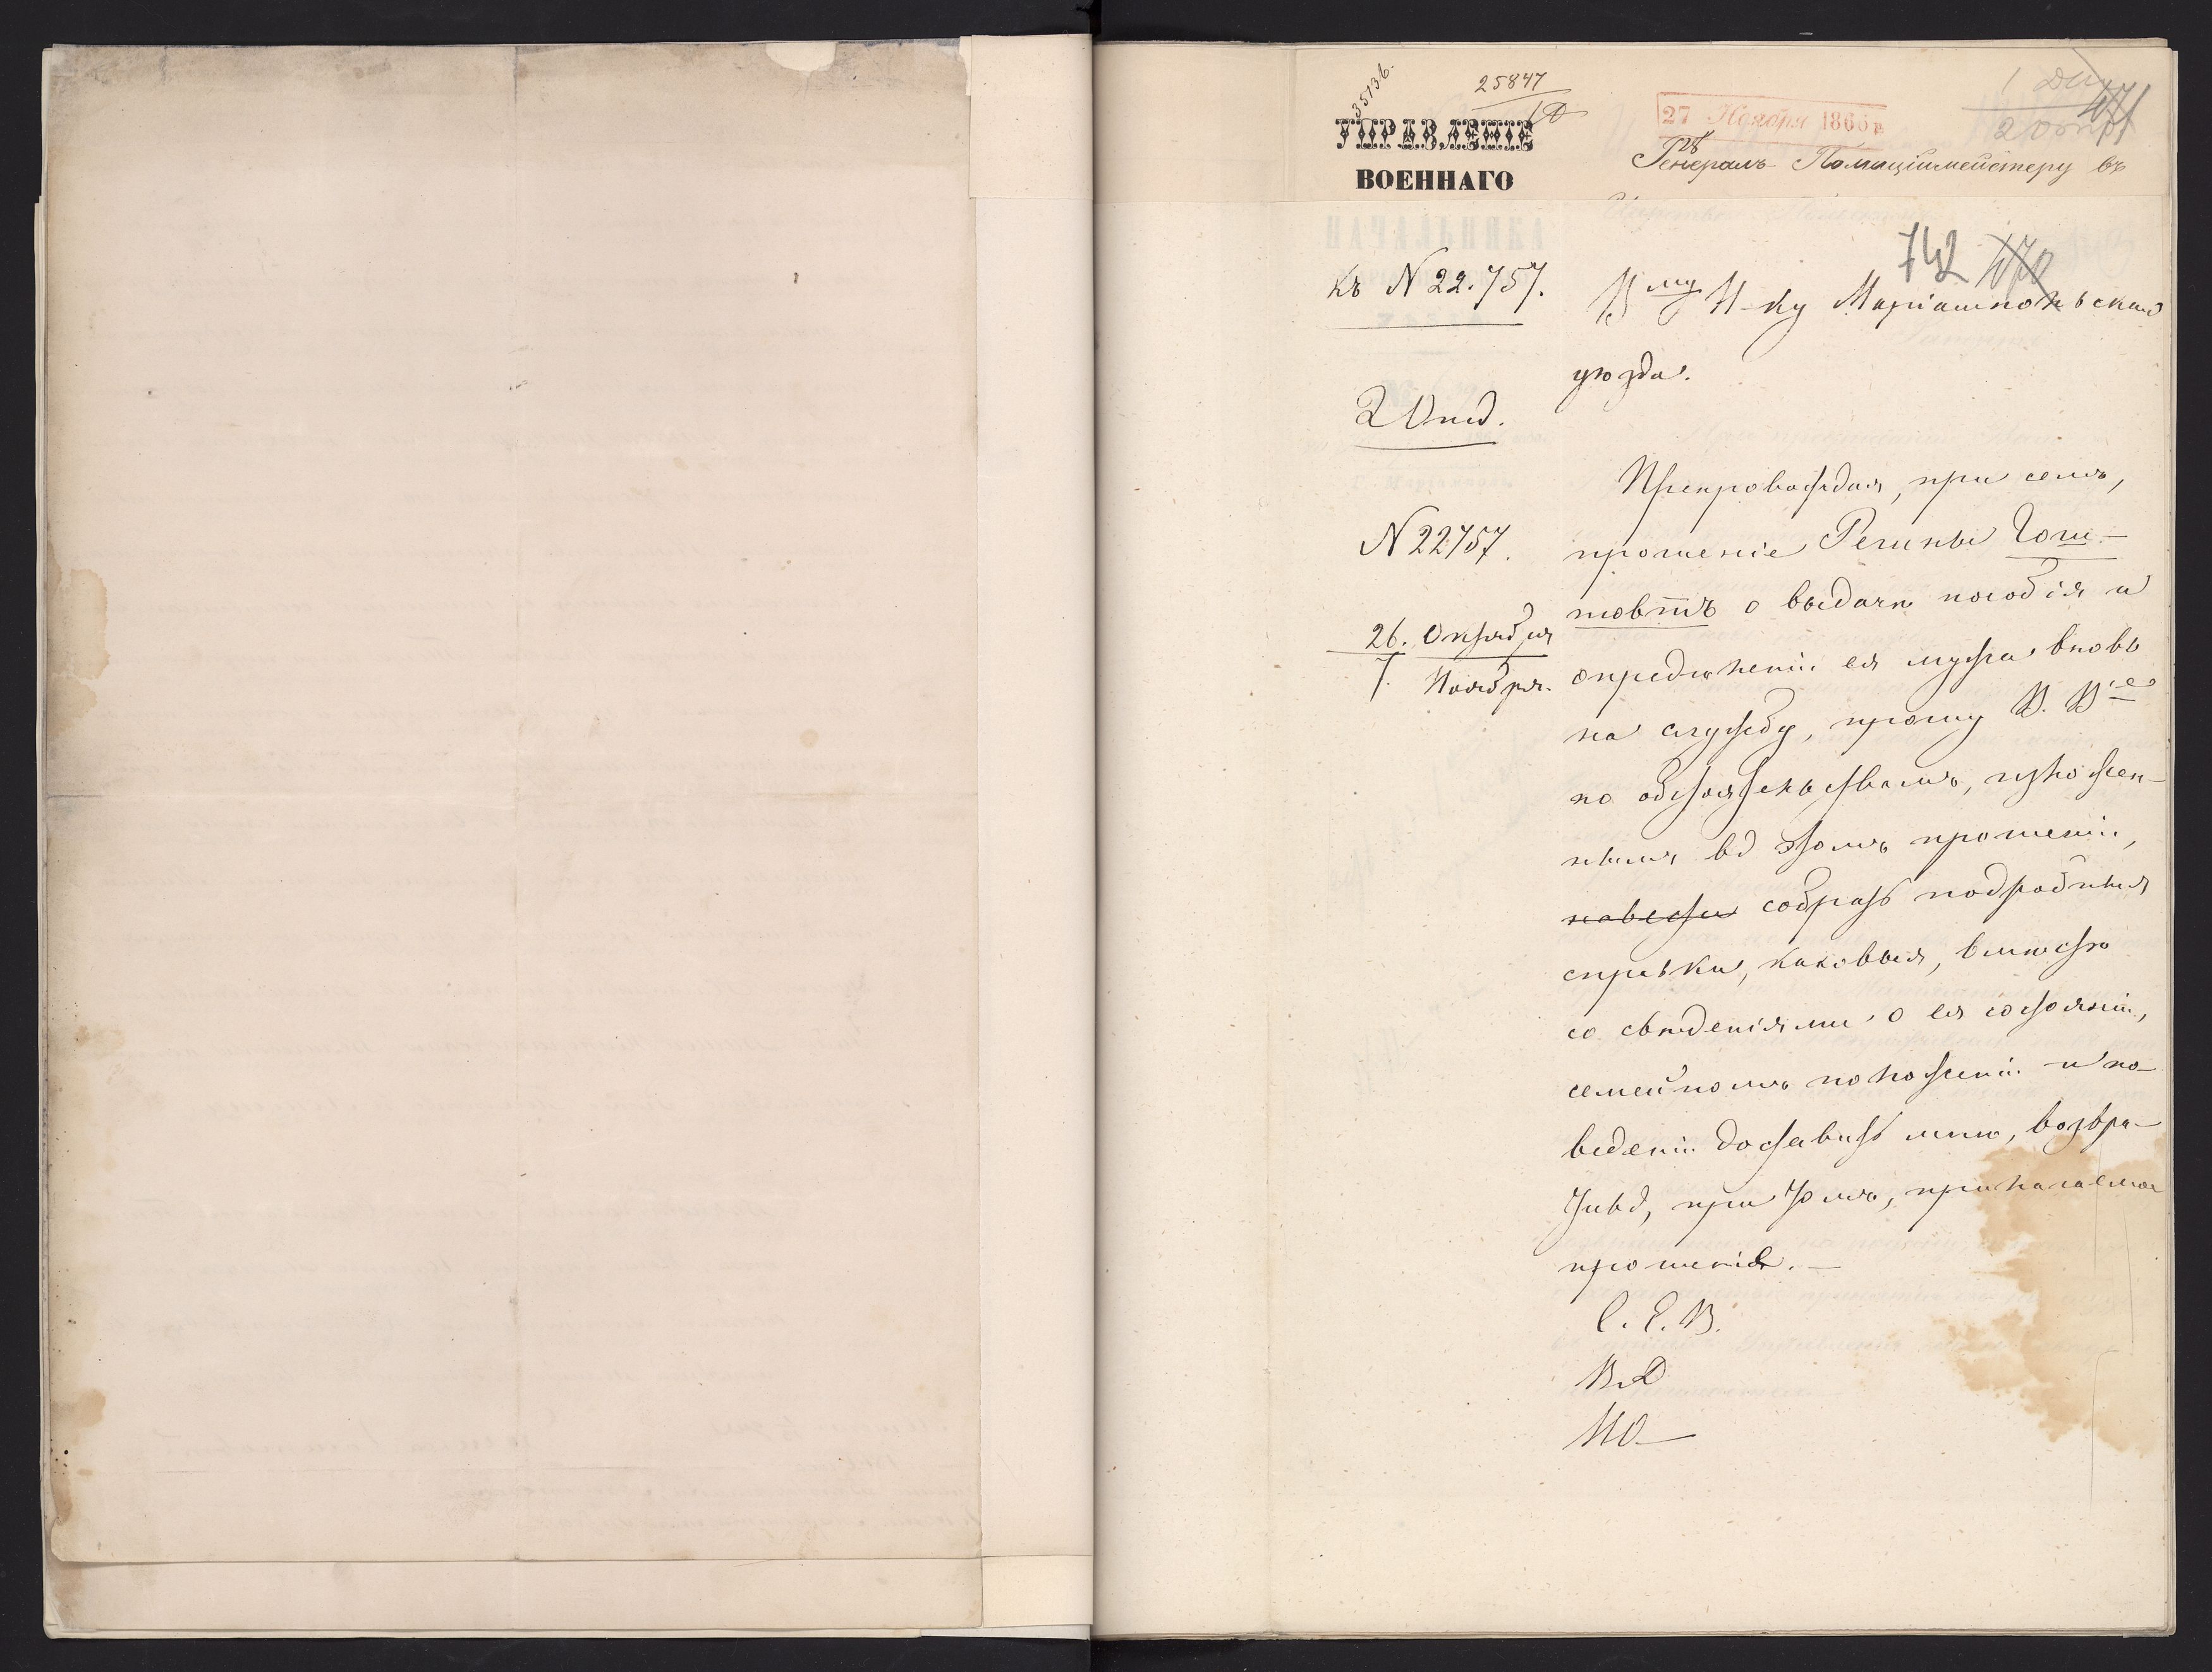 35136.
25847
УПРАВЛЕНІЕ
ВОЕННАГО
27 Ноября 1866 г.
Генералъ Полиціймейстеру въ
742 470
къ N 22.757.
В му Н-ку Маріампольскаго
уѣзда.
2 Отд.
N 22757.
26. Октября
7. Ноября.
Препровождая, при семъ,
прошеніе Регины Гош-
товтъ о выдачѣ пособія и
опредѣленіи ея мужа вновь
на службу, прошу В. В іе
по обстоятельствамъ, изложен-
нымъ въ этомъ прошеніи,
навести собрать подробныя
справки, каковыя, вмѣстѣ
со свѣденіями о ея состояніи,
семейномъ положеніи и по-
веденіи доставить мнѣ, возвра-
тивъ, при томъ, прилагаемое
прошеніе. —
С. Е. В.
В. Д
НО